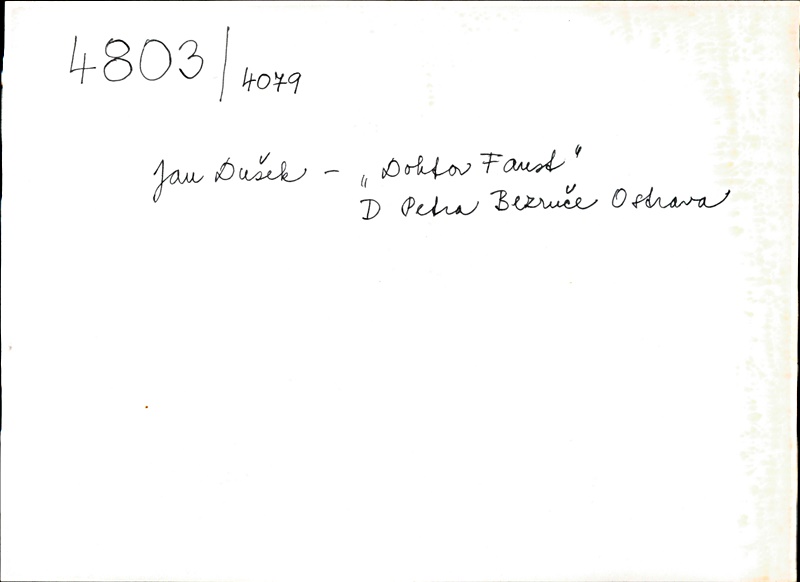 4803/4079
Jan Dušek – „Doktor Faust"
D Petra Bezruče Ostrava